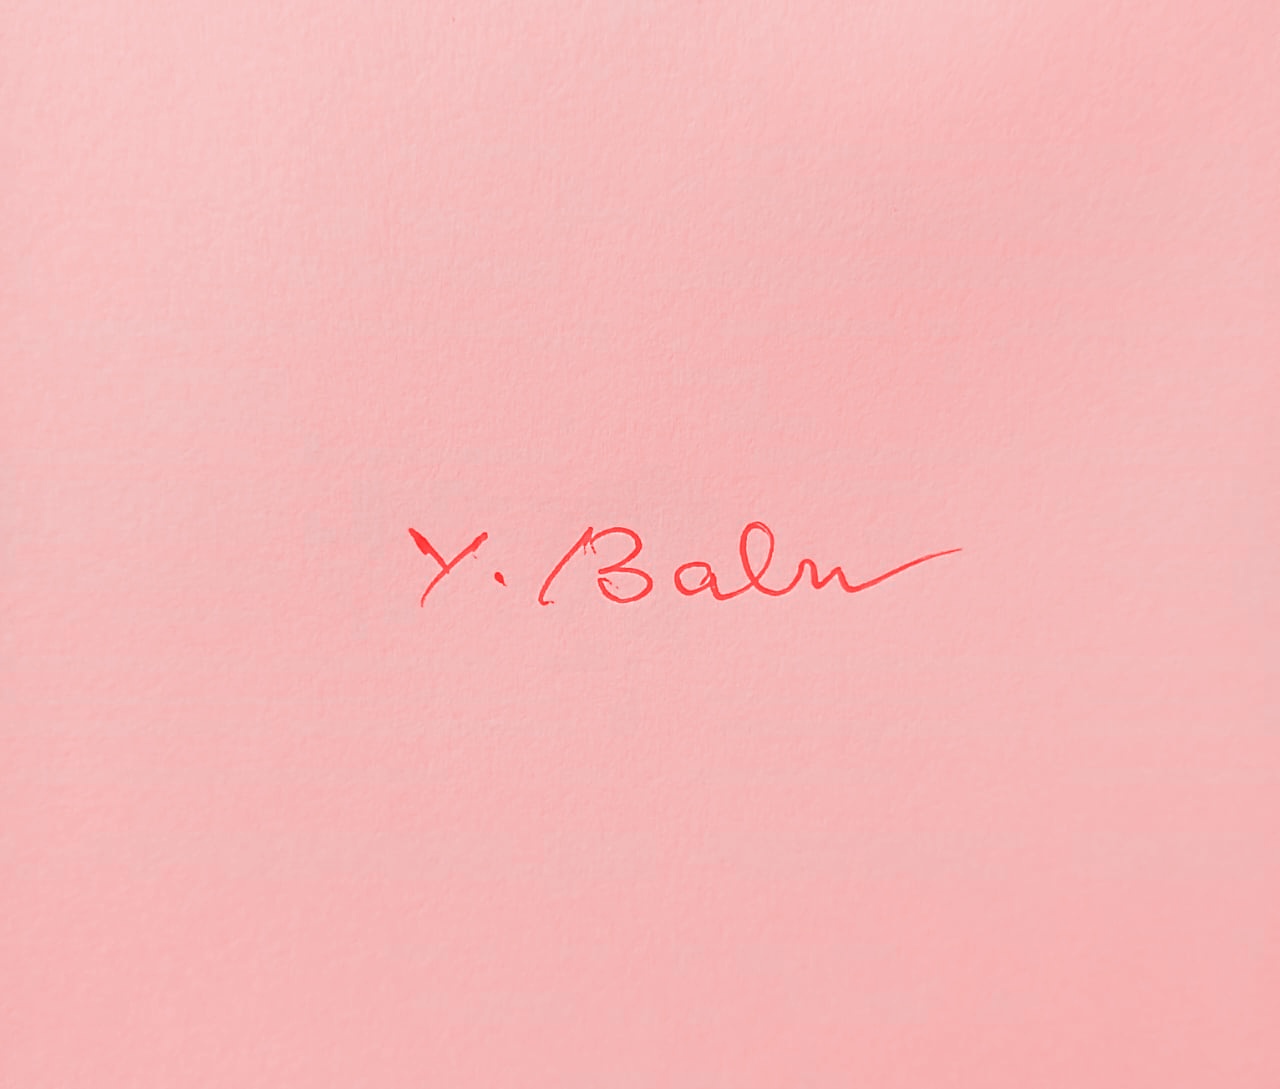 Y. Baln